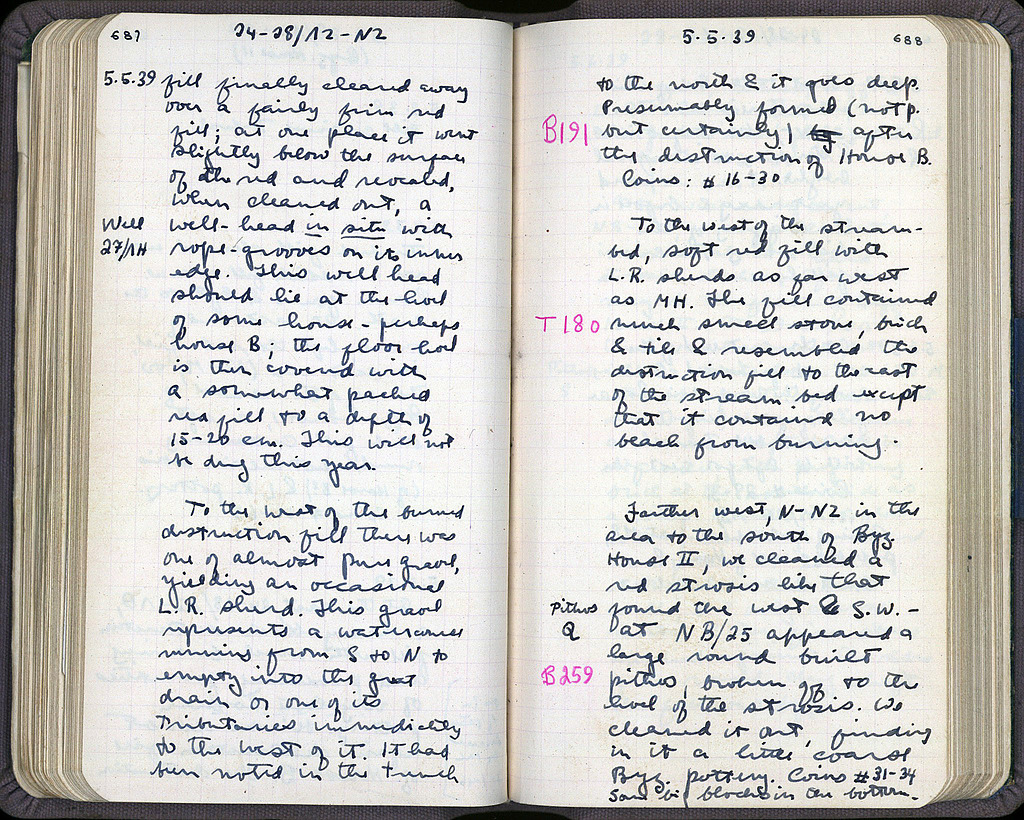 687
24-28/ΛΖ-ΝΖ
5.5.39 fill finally cleared away
over a fairly firm red
fill; at one place it went
slightly below the surface
of the red and revealed,
when cleaned out, a
Well well-head in situ with
27/ΛΗ rope-grooves on its inner
edge. This well head
should lie at the level
of some house - perhaps
house B; the floor level
is then covered with
a somewhat packed
red fill to a depth of
15-20 cm. This will not
be dug this year.
To the west of the burned
destruction fill there was
one of almost pure gravel,
yielding an occasional
L.R. sherd. This gravel
represents a watercourse
running from S to N to
empty into the great
drain or one of its
tributaries immediately
to the west of it. It had
been noted in the trench
5.5.39
688
to the north & it goes deep.
Presumably formed (not p.
B191 but certainly) after
the destruction of House B.
Coins: # 16-30
To the west of the stream-
bed, soft red fill with
L.R. sherds as far west
as MH. The fill contained
T180 much small stone, brick
& tile & resembled the
destruction fill to the east
of the stream bed except
that it contained no
black from burning.
Farther west, N-NZ in the
area to the south of Byz.
House II, we cleaned a
red strosis like that
Pithos found the west & S.W. -
Q at NB/25 appeared a
large round built
B259 pithos, broken off to the
level of the strosis. We
cleaned it out, finding
in it a little coarse
Byz. pottery. Coins #31-34
Some big blocks in the bottom.